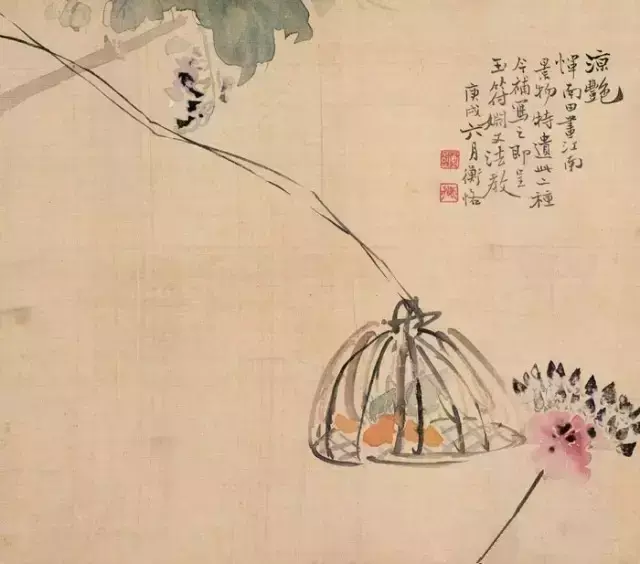 凉艳
惲南田畫江南
景物特遺此二種
今補寫之即呈
玉符姻丈法教
庚戌六月衡恪